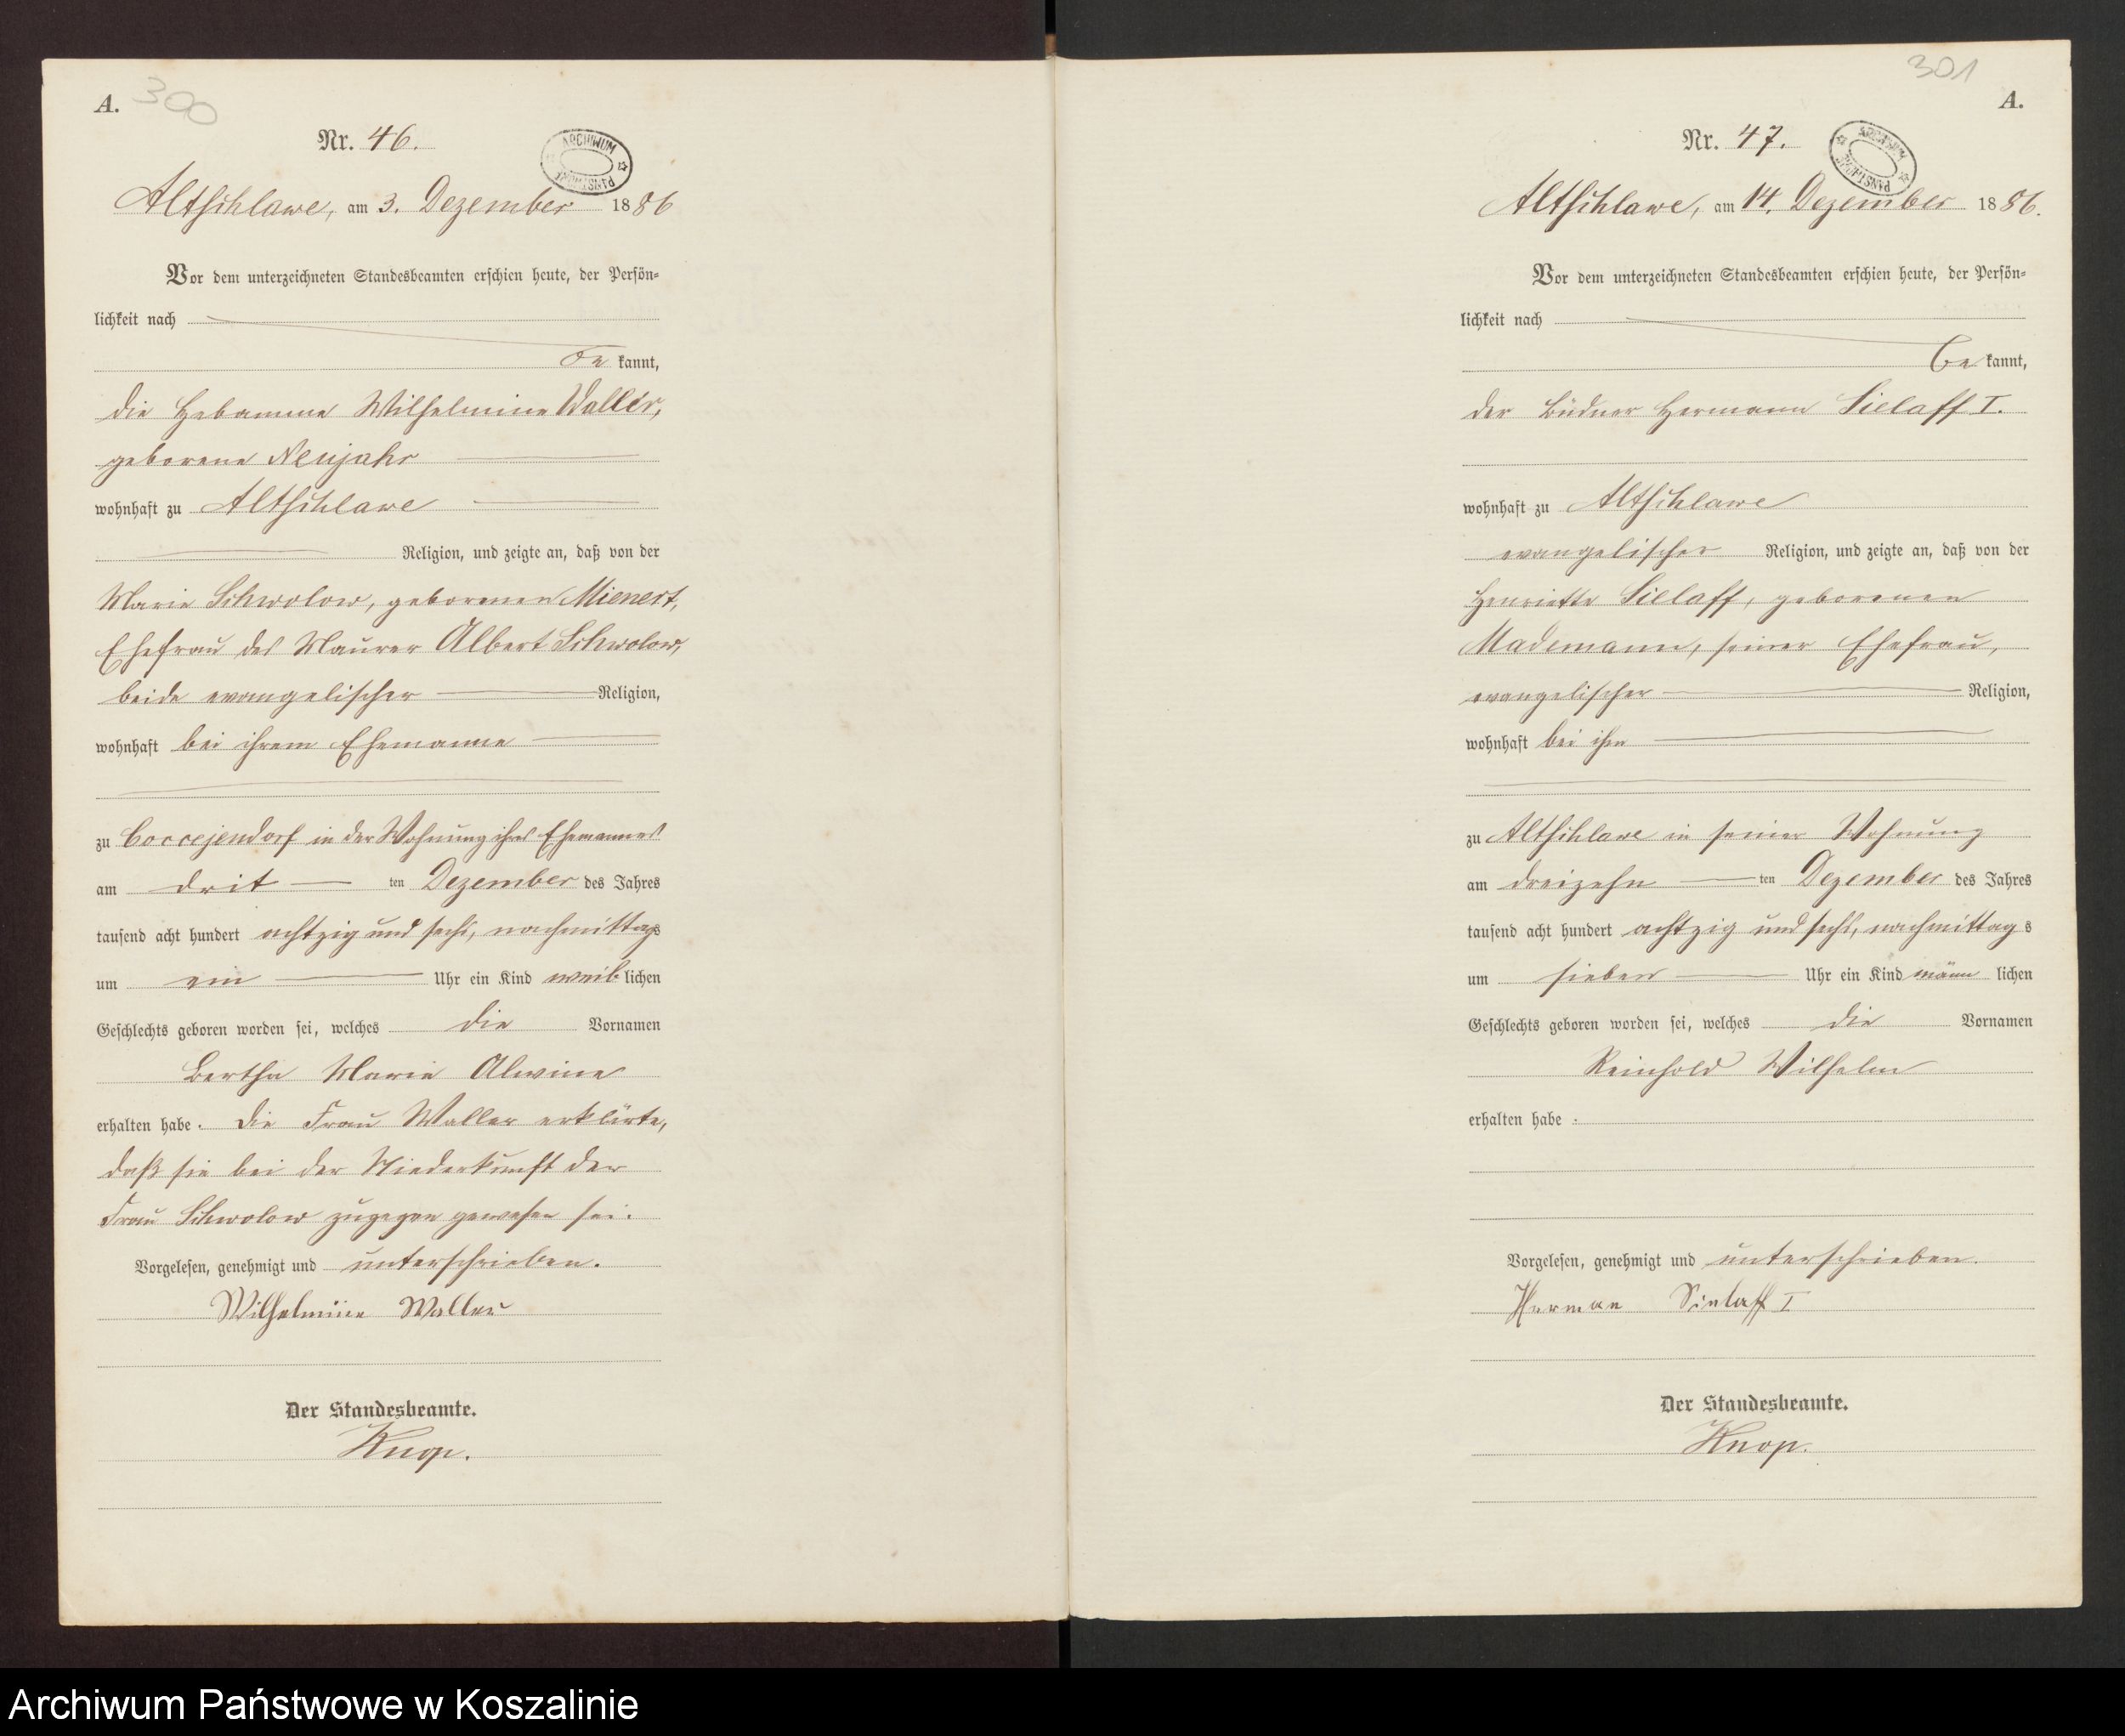 300
A.
Nr. 46.
ARCHIWUM PAŃSTWOWE
Altschlawe, am 3. Dezember 1886
Vor dem unterzeichneten Standesbeamten erschien heute, der Persön-
lichkeit nach
be kannt,
die Hebamme Wilhelmine Waller,
geborene Neujahr
wohnhaft zu Altschlawe
Religion, und zeigte an, daß von der
Marie Schwolow, geborenen Mienert,
Ehefrau des Maurer Albert Schwolow,
beide evangelischer Religion,
wohnhaft bei ihrem Ehemanne
zu Coccejendorf in der Wohnung ihres Ehemannes
am drit ten Dezember des Jahres
tausend acht hundert achtzig und sechs, nachmittags
um ein Uhr ein Kind weiblichen
Geschlechts geboren worden sei, welches die Vornamen
Bertha Marie Alwine
erhalten habe. Die Frau Waller erklärte,
daß sie bei der Niederkunft der
Frau Schwolow zugegen gewesen sei.
Vorgelesen, genehmigt und unterschrieben.
Wilhelmine Waller
Der Standesbeamte.
Knop.
301
A.
Nr. 47.
ARCHIWUM PAŃSTWOWE
Altschlawe, am 14. Dezember 1886.
Vor dem unterzeichneten Standesbeamten erschien heute, der Persön-
lichkeit nach
be kannt,
der Büdner Hermann Sielaff I.
wohnhaft zu Altschlawe
evangelischer Religion, und zeigte an, daß von der
Henriette Sielaff, geborenen
Mademann, seiner Ehefrau,
evangelischer Religion,
wohnhaft bei ihm
zu Altschlawe in seiner Wohnung
am dreizehn ten Dezember des Jahres
tausend acht hundert achtzig und sechs, nachmittag s
um sieben Uhr ein Kind männ lichen
Geschlechts geboren worden sei, welches die Vornamen
Reinhold Wilhelm
erhalten habe.
Vorgelesen, genehmigt und unterschrieben.
Herman Sielaff I
Der Standesbeamte.
Knop.
Archiwum Państwowe w Koszalinie